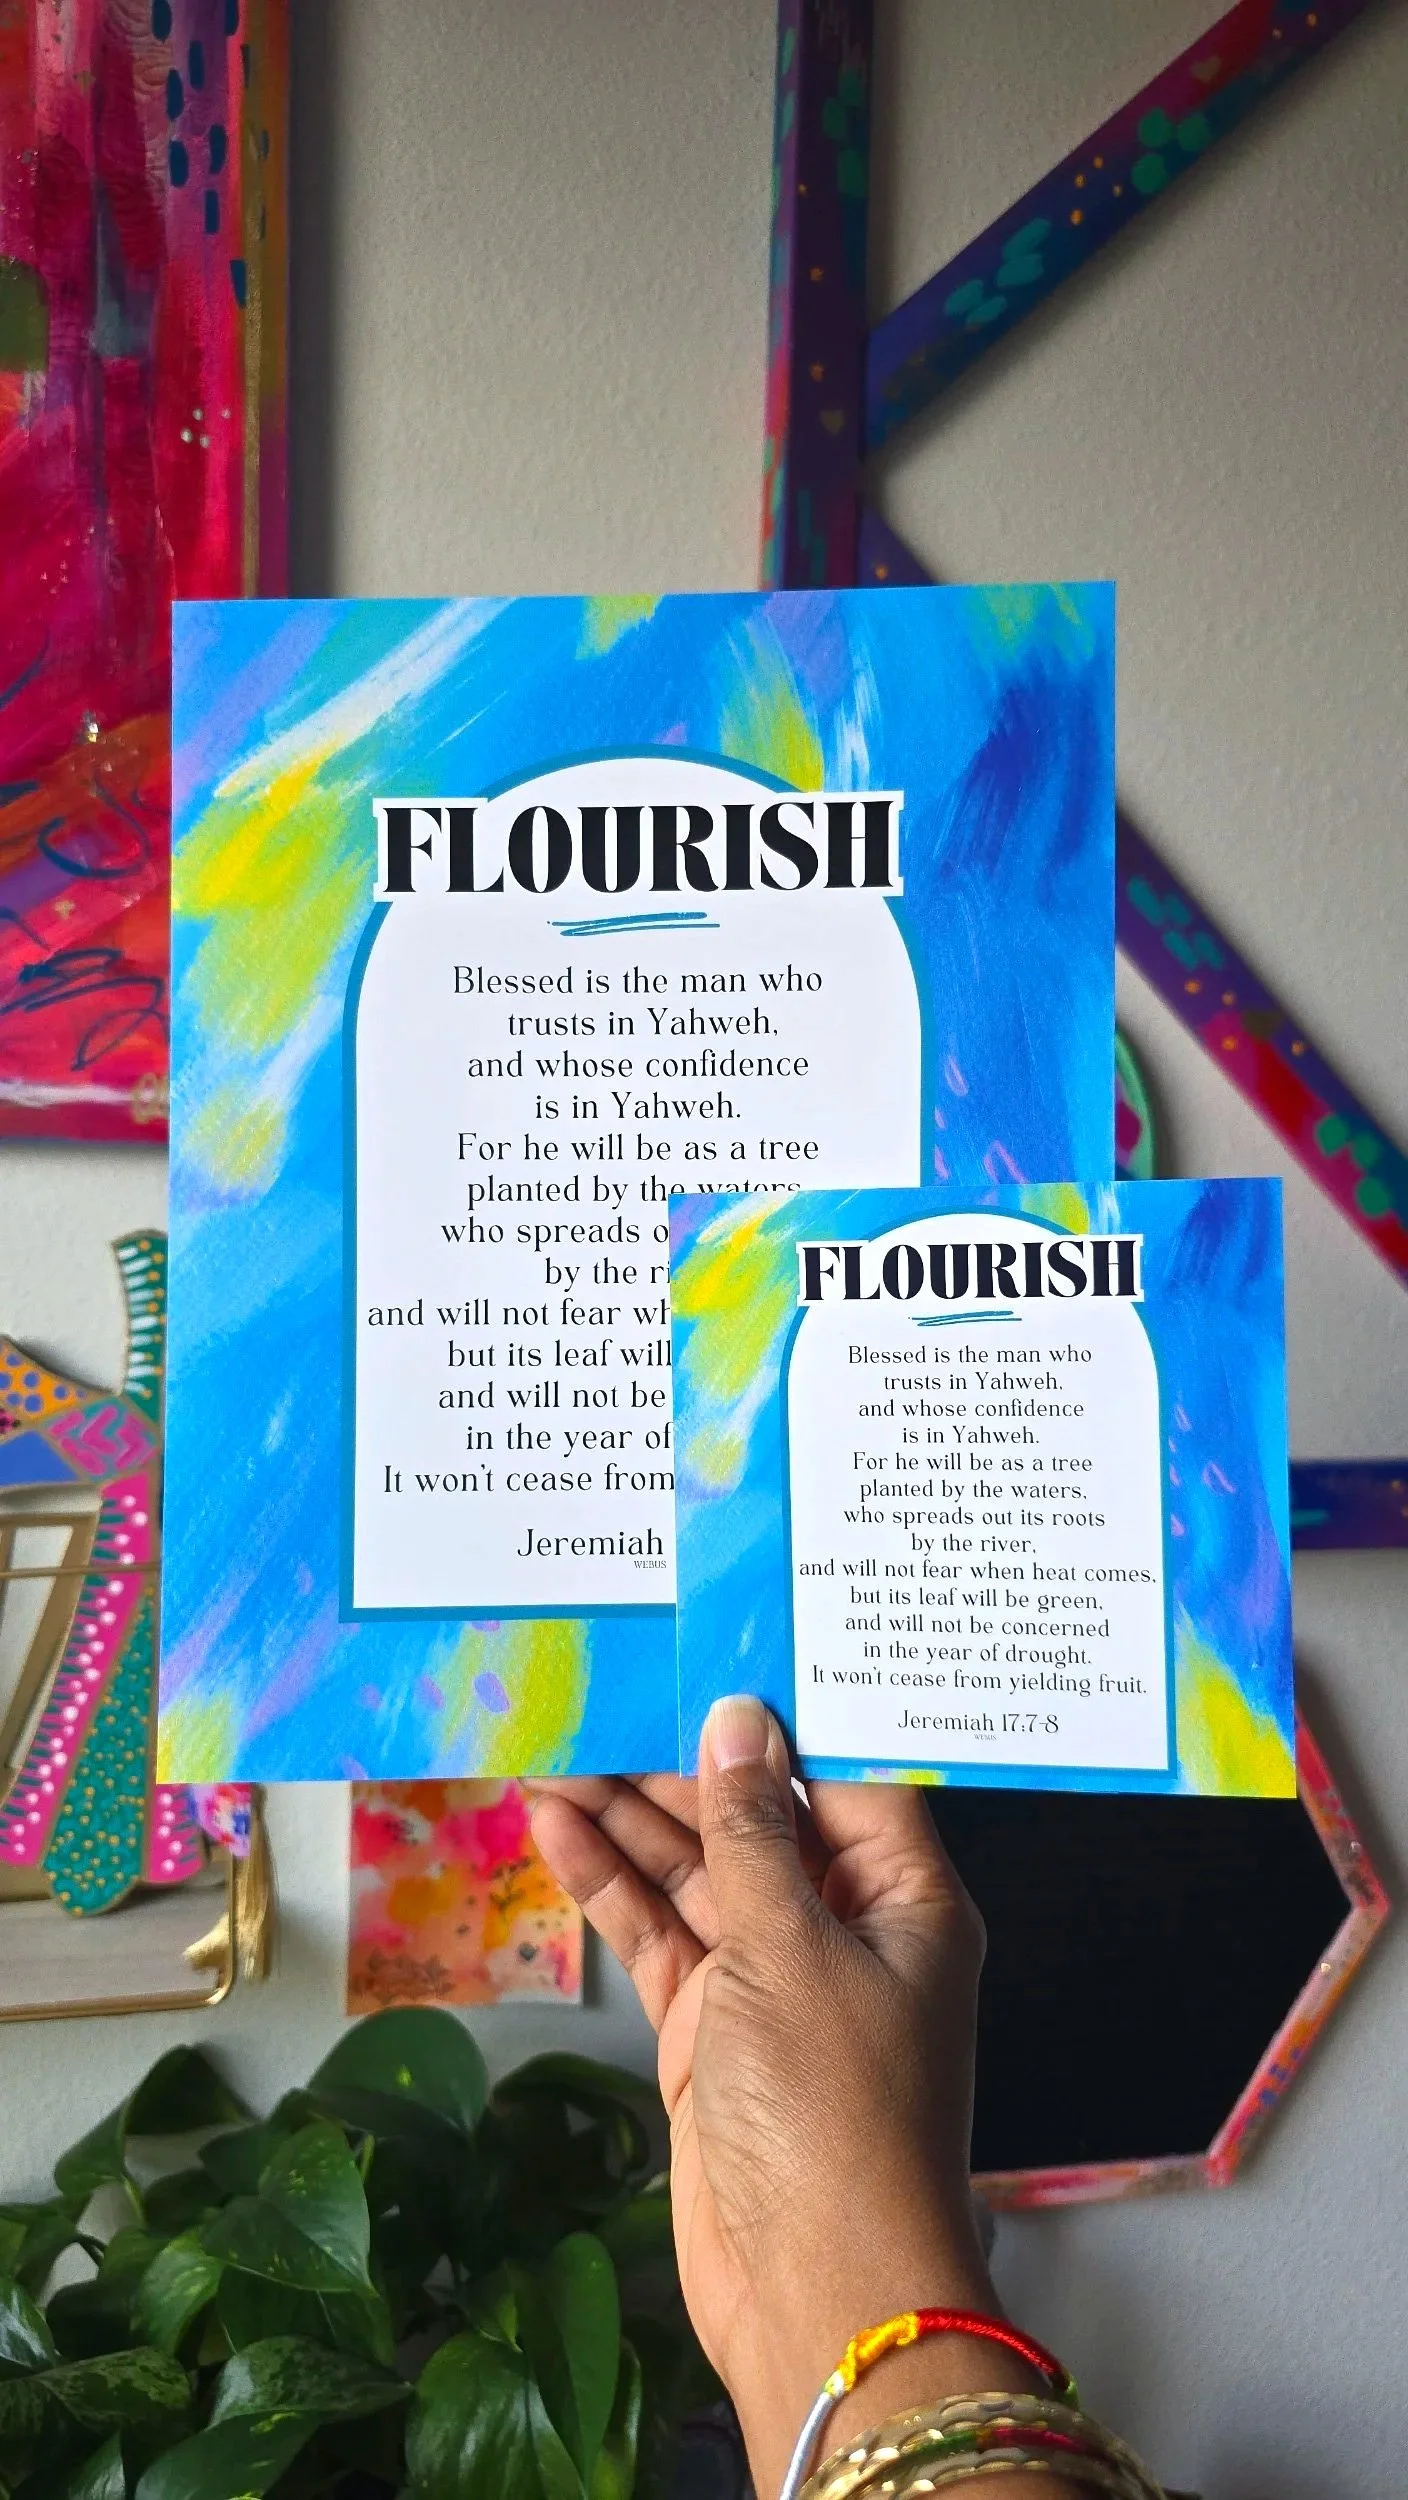 FLOURISH
Blessed is the man who
trusts in Yahweh,
and whose confidence
is in Yahweh.
For he will be as a tree
planted by the waters
who spreads
by the
and will not fear
but its leaf will
and will not be
in the year of
It won't cease from
Jeremiah
WEBUS
FLOURISH
Blessed is the man who
trusts in Yahweh,
and whose confidence
is in Yahweh.
For he will be as a tree
planted by the waters,
who spreads out its roots
by the river,
and will not fear when heat comes,
but its leaf will be green,
and will not be concerned
in the year of drought.
It won't cease from yielding fruit.
Jeremiah 17:7-8
WEBUS